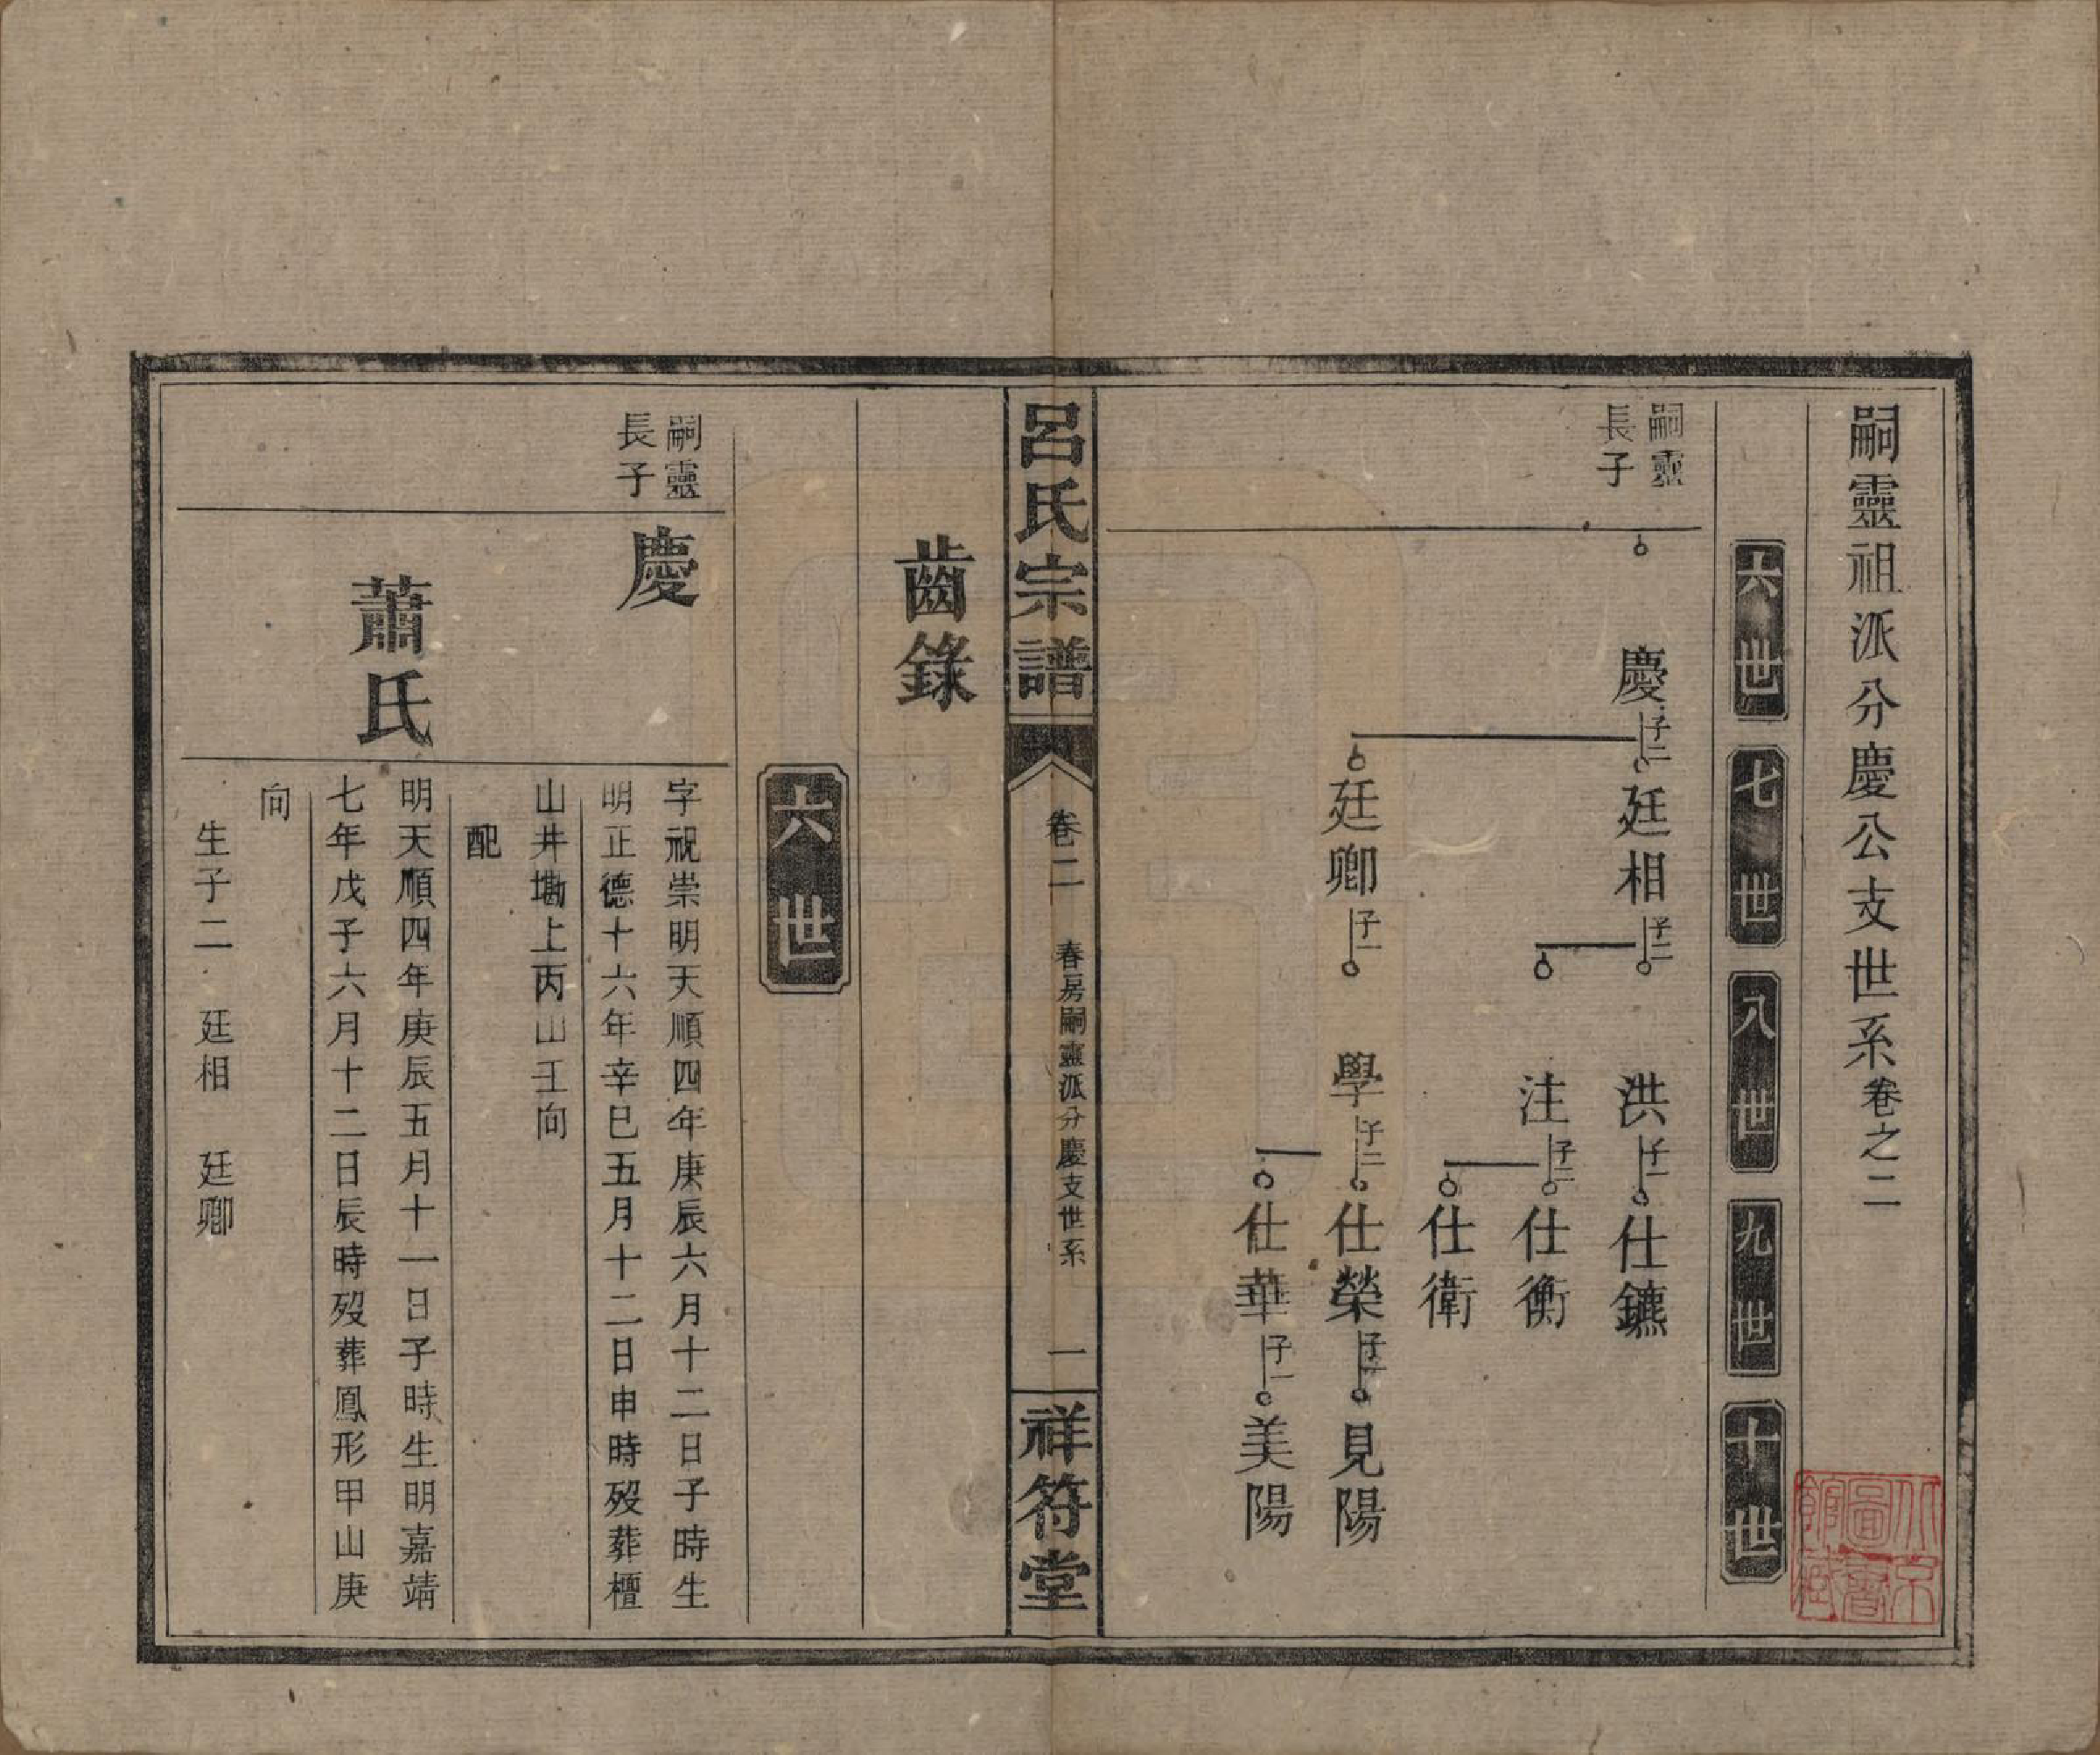 嗣靈祖派分慶公支世系卷之二
六世
七世
八世
九世
十世
嗣靈
長子
慶 子二
廷相 子二
洪 子一
仕鑣
注 子二
仕衡
仕衛
廷卿 子一
學 子二
仕榮 子一
見陽
仕華 子一
美陽
呂氏宗譜
卷二
春房嗣靈派分慶支世系
一
祥符堂
齒錄
六世
嗣靈
長子
慶
字視崇明天順四年庚辰六月十二日子時生
明正德十六年辛巳五月十二日申時歿葬檀
山井墈上丙山壬向
配
蕭氏
明天順四年庚辰五月十一日子時生明嘉靖
七年戊子六月十二日辰時歿葬鳳形甲山庚
向
生子二 廷相 廷卿
北京
圖書
館藏